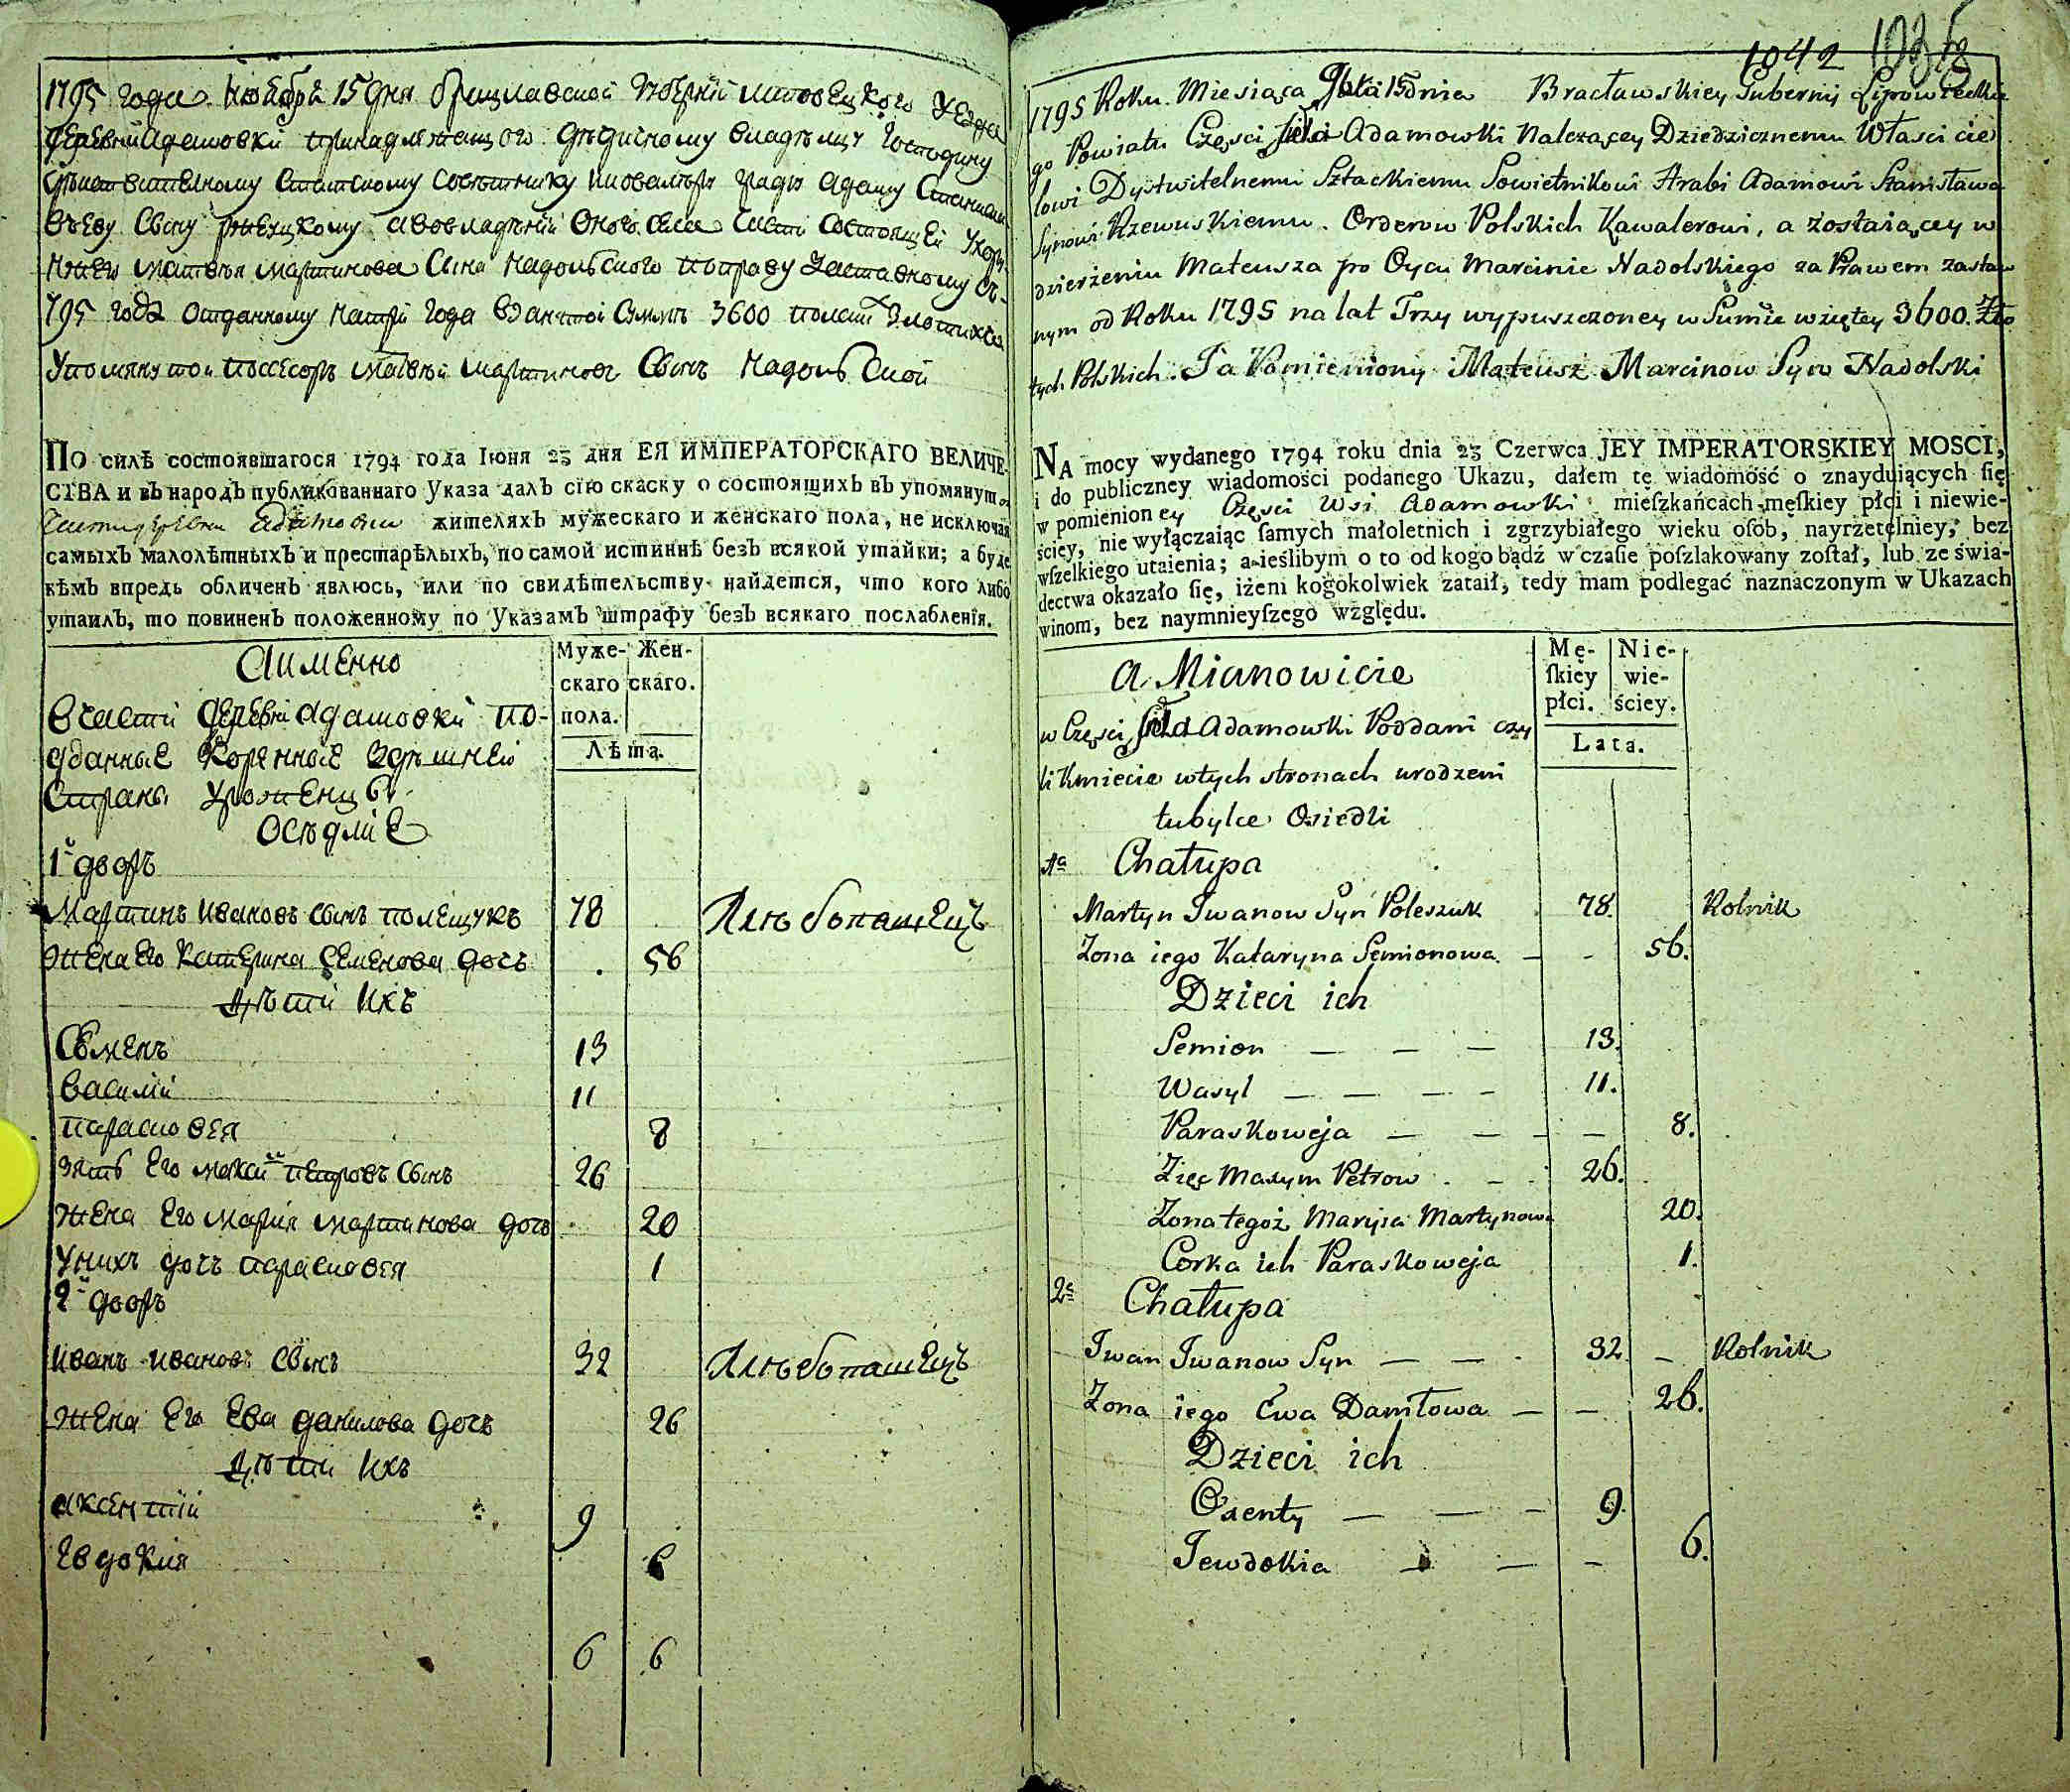 1795 года Ноября 15 дня брацлавской губернiи липовецкого уезда
деревни Адамовки принадлежащого дѣдичному владѣлцу Господину
дѣиствителному статскому совѣтнику и кавалѣру графу Адаму Станисла
вьеву сыну ржевускому а во владѣнiи оного села части состоящей
Матвѣя мартинова сына Надольского по праву заставному съ
795 года отданному на три года взаимной суммѣ 3600 полски злотихъ
Упомянутой посесоръ матвѣй мартиновъ сынъ Надольской
По силѣ состоявшагося 1794 года Iюня 23 дня ЕЯ ИМПЕРАТОРСКАГО ВЕЛИЧЕ-
СТВА и въ народъ публикованнаго Указа далъ сiю скаску о состоящихъ въ упомянутой
части деревни Адамовки жителяхъ мужескаго и женскаго пола, не исключая
самыхъ малолѣтныхъ и престарѣлыхъ, по самой истиннѣ безъ всякой утайки; а буде
кѣмъ впредь обличенъ явлюсь, или по свидѣтельству найдется, что кого либо
утаилъ, то повиненъ положенному по Указамъ штрафу безъ всякаго послабленiя.
Аименно
Муже- Жен-
скаго скаго.
пола.
Лѣта.
Вчасти деревни Адамовки по-
дданные коренные здѣшней
страны уроженцы
осѣдлiе
1й дворъ
Мартинъ Ивановъ сынъ полещукъ 78 Хлѣбопашецъ
жена его катерина семенова дочь 56
дѣти ихъ
Семенъ 13
Василiй 11
парасковея 8
зять его максимъ петровъ сынъ 26
жена его марiя мартинова дочь 20
у нихъ дочь парасковея 1
2й дворъ
Иванъ ивановъ сынъ 32 Хлѣбопашецъ
жена его Ева данилова дочь 26
дѣти ихъ
аксентiй 9
Евдокiя 6
6 6
1042
1795 Roku Miesiąca 9bra 15 dnia Bracławskiey Gubernij Lipowieckie
go Powiatu Części Sieła Adamowki Nalezącey Dziedzicznemu Właścicie
lowi Dystwitelnemu Sztackiemu Sowietnikowi Hrabi Adamowi Stanisława
Synowi Rzewuskiemu. Orderow Polskich Kawalerowi, a zostaiącey w
dzierżeniu Mateusza po Oycu Marcinie Nadolskiego za Prawem zastaw
nym od Roku 1795 na lat Trzy wypuszczoney w Sumie wziętey 3600. Zło
tych Polskich. Ja Pomieniony Mateusz Marcinow Syn Nadolski
NA mocy wydanego 1794 roku dnia 23 Czerwca JEY IMPERATORSKIEY MOSCI,
i do publiczney wiadomości podanego Ukazu, dałem tę wiadomość o znayduiących ſię
w pomienioney Części Wsi Adamowki mieſzkańcach męſkiey płci i niewie-
ściey, nie wyłączaiąc ſamych małoletnich i zgrzybiałego wieku oſób, nayrzetelniey, bez
wſzelkiego utaienia; a ieślibym o to od kogo bądź w czaſie poſzlakowany zoſtał, lub ze świa-
dectwa okazało ſię, iżem kogokolwiek zataił, tedy mam podlegać naznaczonym w Ukazach
winom, bez naymnieyſzego względu.
a Mianowicie
Mę- Nie-
ſkiey wie-
płci. ściey.
Lata.
w Części Sieła Adamowki Poddani czy
li Kmiecie w tych stronach urodzeni
tubylce Osiedli
1a Chałupa
Martyn Iwanow Syn Poleszuk 78. Rolnik
Zona iego Kataryna Semionowa 56.
Dzieci ich
Semion 13.
Wasyl 11.
Paraskoweja 8.
Zięć Maxym Petrow 26.
Zona tegoż Maryia Martynowa 20.
Corka ich Paraskoweja 1.
2a Chałupa
Iwan Iwanow Syn 32 Rolnik
Zona iego Ewa Daniłowa 26.
Dzieci ich
Oxenty 9.
Jewdokia 6.